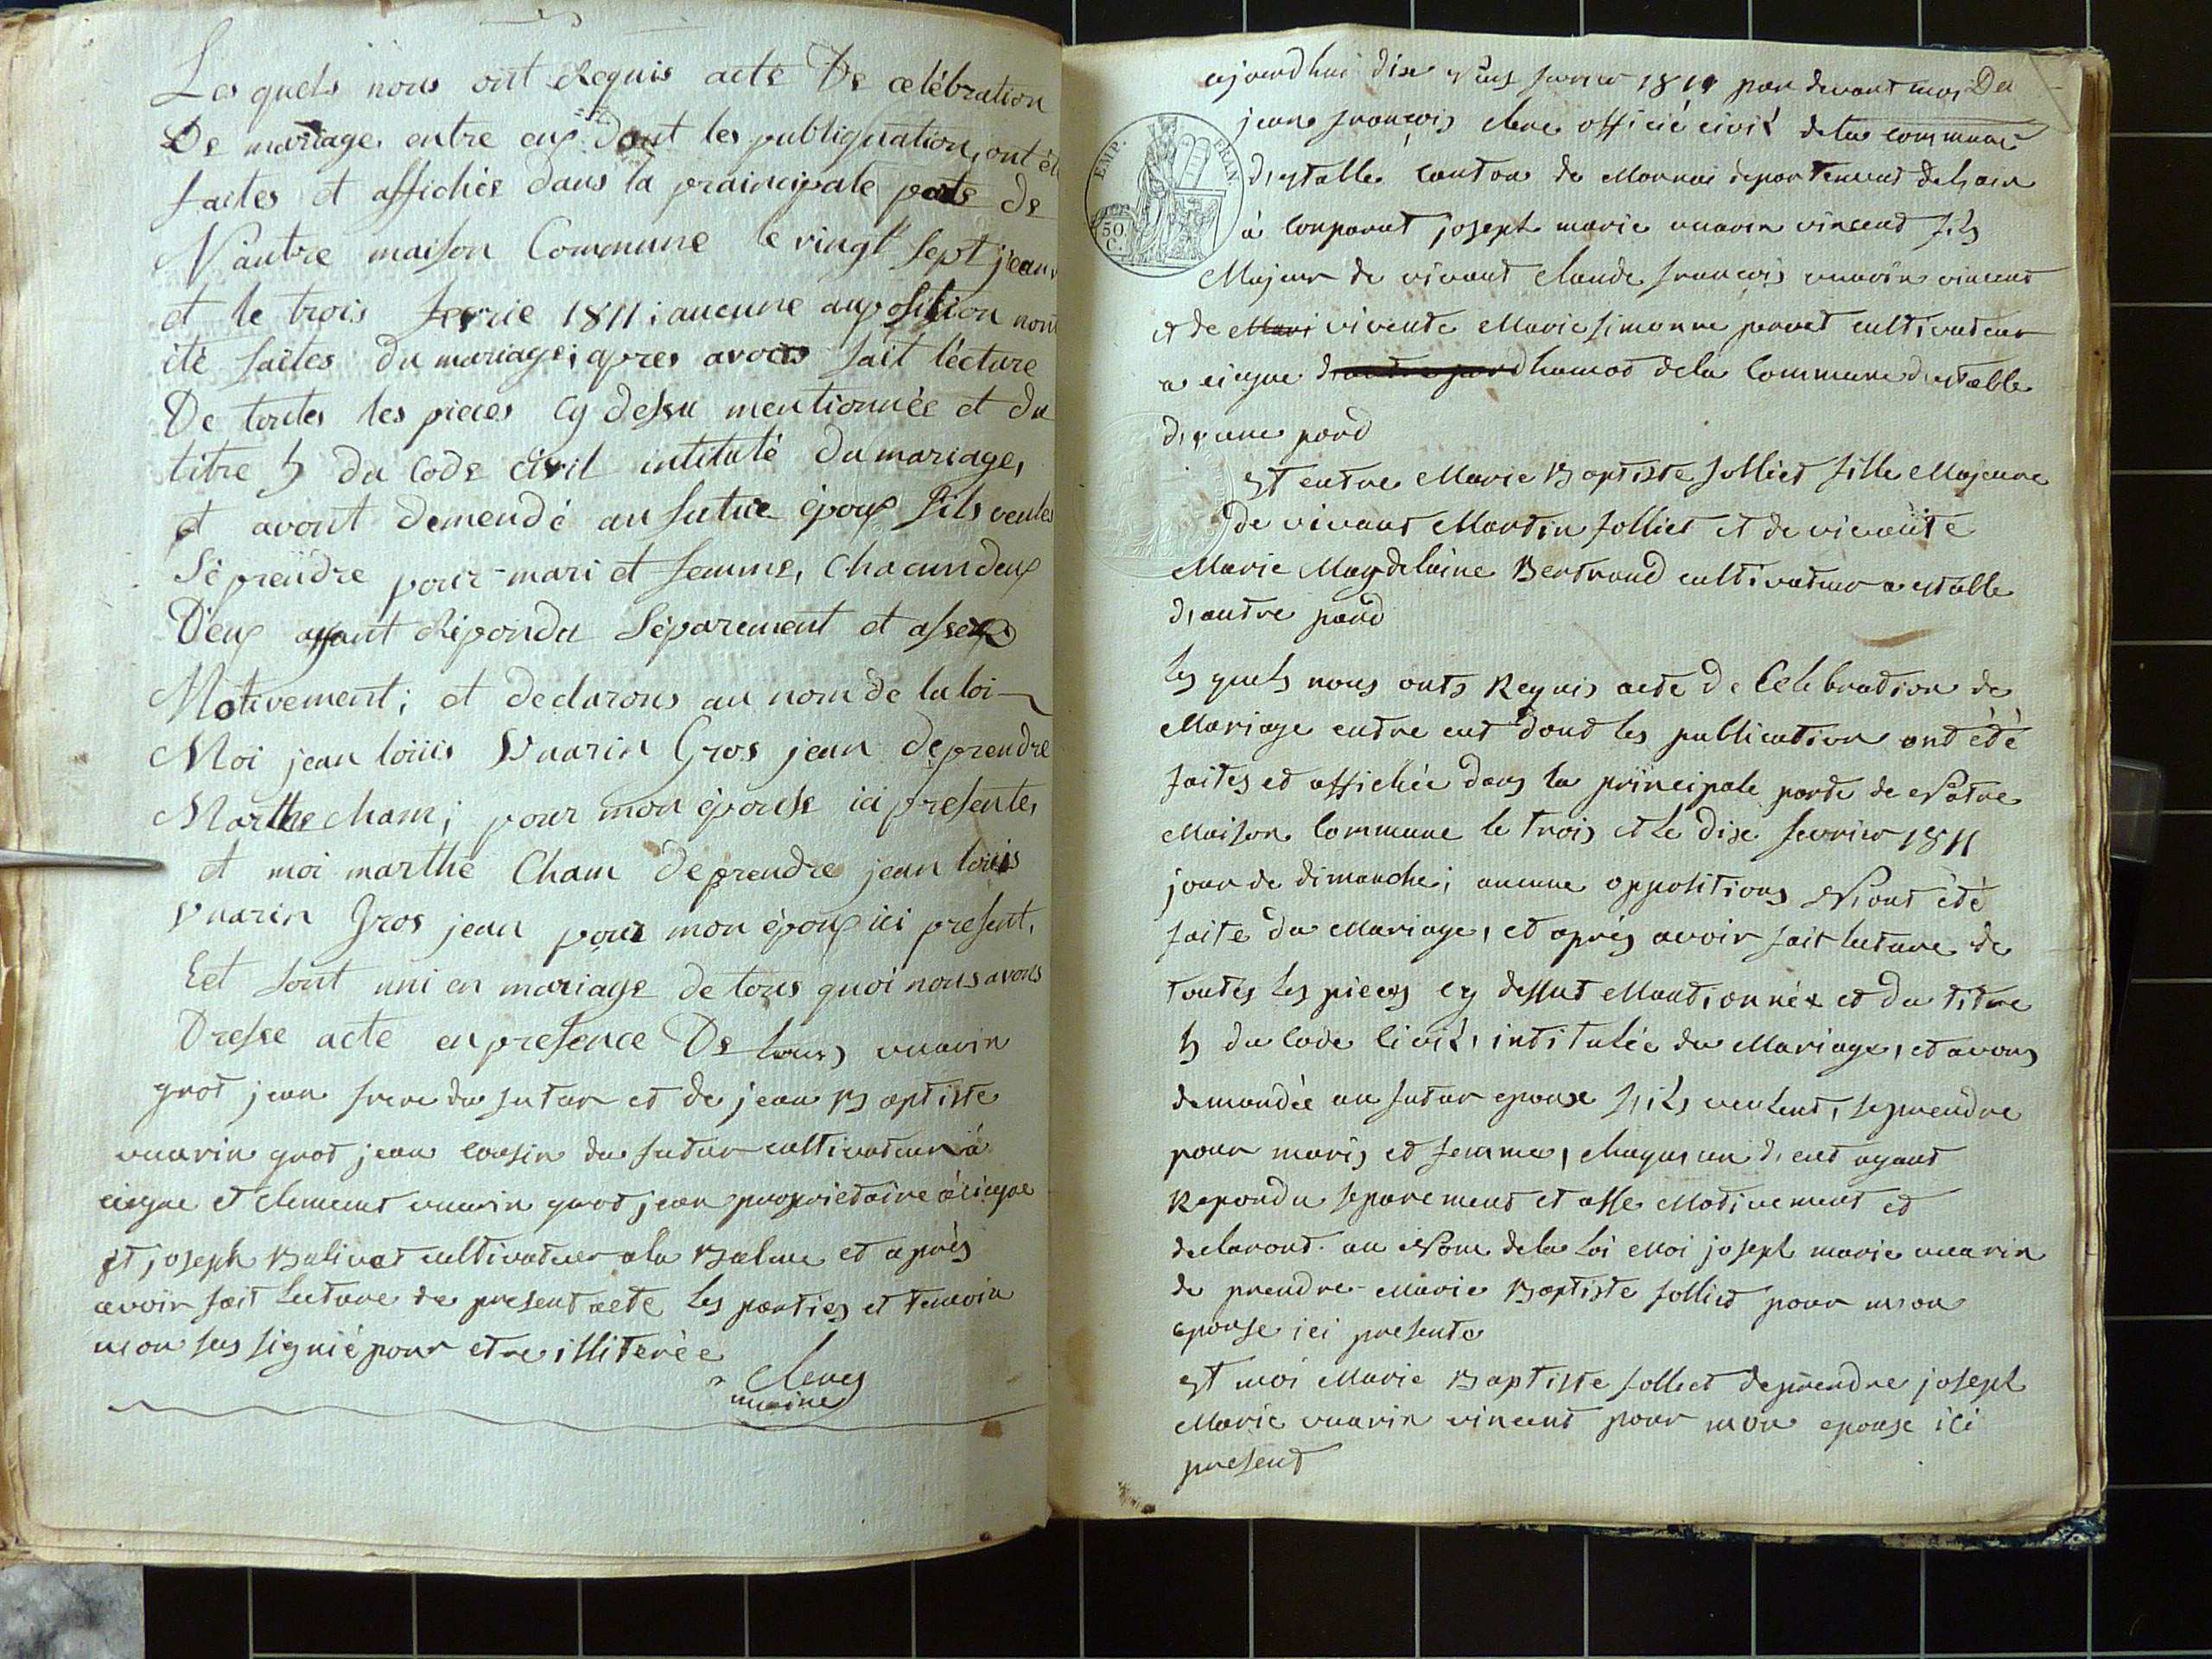 Les quels nous ont Requis acte De célébration
De mariage entre eux dont les publiquation, ont été
faites et affichée dans la praincipale porte de
Nautre maison Commune le vingt sept jean
et le trois fevrie 1811; aucune auposition nont
été faites du mariage; apres avoir fait lécture
De toutes les pieces cy dessu mentionnée et du
titre 5 du Code civil intitulé du mariage,
et avont demendé au future époux s'ils veules
sé preïdre pour mari et femme, Chacun deux
D'eux ayant Réponda séparement et afse
Motivement; et declarons au nom de la loi
Moi jean loüis Vuarin Gros jean de prendre
Marthe cham; pour mon épouse ici presente,
et moi marthe Cham de prendre jean loüis
Vuarin Gros jean pour mon époux ici present.
Eet sont uni en mariage de tous quoi nous avons
Dresse acte en presence De louis vuarin
grot jean frere du futur et de jean Baptiste
vuarin grot jean cousin du futur cultivateur à
eicgne et Clement vuarin grot jean proprietaire à eicgne
et joseph Balivat cultivateur a la Balme et après
avoir fait lecture de present acte les parties et temoin
non sus signié pour etre illiterée
Clenes
maire
aujourdhui dise neus fevrier 1811 par devant moi De
jean françois clene officié civil de la commune
d'estable canton de Mornai départemend de l'ain
à comparut joseph marie vuarin vincend fils
Majeur de vivant Claude françois vuarin vincent
et de Mari vivente Marie simonne perret cultivateur
a eicgne d'autre pard hamot de la Commune d'estable
d'une pard
et entre Marie Baptiste follied fille Majeure
de vivant Martin follies et de vivante
Marie Magdelaine Bertrand cultivateur a estable
d'autre pard
les quels nous onts Requis acte de Celebration de
Mariage entre eut dont les publication ont été
faites et affichée dans la principale porte de Notre
Maison Commune le trois et le dise fevrier 1811
jour de dimanche; aucune oppositions N'ont été
faite du Mariage, et après avoir fait lecture de
toutes les pieces cy dessut Mantionnée et du titre
5 du Code Civil, intitulée du Mariage, et avons
demandée au futur epouse s'ils veulent, se prendre
pour maris et femme, chaqun un d'eut ayant
Repondu separement et affe Motivement et
declaront au Nom de la loi Moi joseph marie vuarin
de prendre Marie Baptiste follied pour mon
epouse ici presente
et moi Marie Baptiste follied de prendre joseph
Marie vuarin vincent pour mon epouse ici
present
EMP. FRAN
50
C.